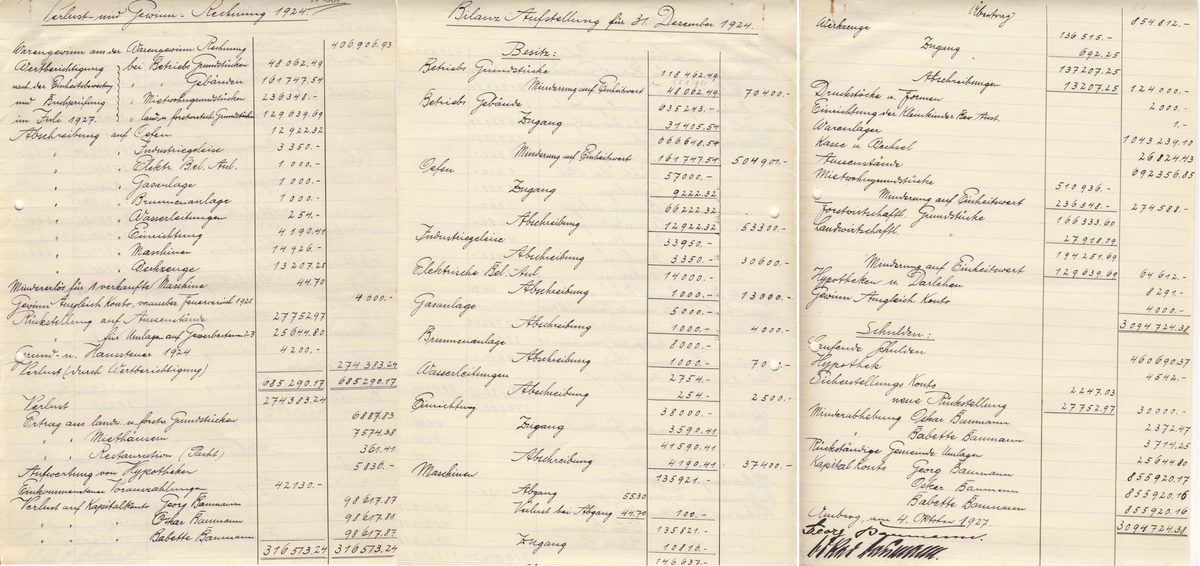 Verlust- und Gewinn-Rechnung 1924
Warengewinn aus der Warengewinn Rechnung 406906.93
Wertberichtigung bei Betriebs Grundstücken 48062.49
nach der Einheitswertung " " Gebäuden 161747.54
und Buchprüfung " Mietwohngrundstücken 236348.-
im Juli 1927. " land u. forstwirtsch. Grundstücken 129039.69
Abschreibung auf Oefen 12922.32
" " Industriegeleise 3350.-
" " Elektr. Bel. Anl. 1000.-
" " Gasanlage 1000.-
" " Brunnenanlage 1000.-
" " Wasserleitungen 254.-
" " Einrichtung 4190.41
" " Maschinen 14926.-
" " Werkzeuge 13207.25
Mindererlös für 1 verkaufte Maschine 44.70
Gewinn Ausgleich Konto, vorausbez. Feuerversich 1925 4000.-
Rückstellung auf Aussenstände 27752.97
" für Umlagen auf Gewerbesteuer 23 25644.80
Grund- u. Haussteuer 1924 4200.-
Verlust (durch Wertberichtigung) 274383.24
685290.17 685290.17
Verlust 274383.24
Ertrag aus landw. u. forstw. Grundstücken 6887.83
" " Miethäusern 7574.38
" " Restauration (Pacht) 361.41
Aufwertung von Hypotheken 5836.-
Einkommensteuer Vorauszahlungen 42130.-
Verlust auf Kapitalkonto Georg Baumann 98617.87
" " Oskar Baumann 98617.87
" " Babette Baumann 98617.87
316513.24 316513.24
Bilanz Aufstellung für 31. Dezember 1924.
Besitz:
Betriebs Grundstücke 118462.49
Minderung auf Einheitswert 48062.49 70400.-
Betriebs Gebäude 635243.-
Zugang 31405.54
666648.54
Minderung auf Einheitswert 161747.54 504901.-
Oefen 57000.-
Zugang 9222.32
66222.32
Abschreibung 12922.32 53300.-
Industriegeleise 33950.-
Abschreibung 3350.- 30600.-
Elektrische Bel. Anl. 14000.-
Abschreibung 1000.- 13000.-
Gasanlage 5000.-
Abschreibung 1000.- 4000.-
Brunnenanlage 8000.-
Abschreibung 1000.- 7000.-
Wasserleitungen 2754.-
Abschreibung 254.- 2500.-
Einrichtung 38000.-
Zugang 3590.41
41590.41
Abschreibung 4190.41 37400.-
Maschinen 135921.-
Abgang 55.30
Verlust bei Abgang 44.70 100.-
135821.-
Zugang 10816.-
146637.-
Übertrag 854812.-
Werkzeuge 136515.-
Zugang 692.25
137207.25
Abschreibungen 13207.25 124000.-
Druckstöcke u. Formen 2000.-
Einrichtung der Kleinkinder Bew. Anst. 1.-
Warenlager 1043239.10
Kasse u. Wechsel 26824.43
Aussenstände 692356.85
Mietwohngrundstücke 510936.-
Minderung auf Einheitswert 236348.- 274588.-
Forstwirtschaftl. Grundstücke 166333.60
Landwirtschaftl. " 27918.09
194251.69
Minderung auf Einheitswert 129639.69 64612.-
Hypotheken u. Darlehen 8291.-
Gewinn Ausgleich Konto 4000.-
3094724.38
Schulden:
Laufende Schulden 460690.37
Hypothek 4542.-
Sicherstellungs Konto 2247.03
neue Rückstellung 27752.97 30000.-
Minderabhebung Oskar Baumann 2372.47
" Babette Baumann 3714.25
Rückständige Gemeinde Umlagen 25644.80
Kapital Konto Georg Baumann 855920.17
" Oskar Baumann 855920.16
" Babette Baumann 855920.16
Amberg, am 4. Oktober 1927. 3094724.38
Georg Baumann.
Oskar Baumann.